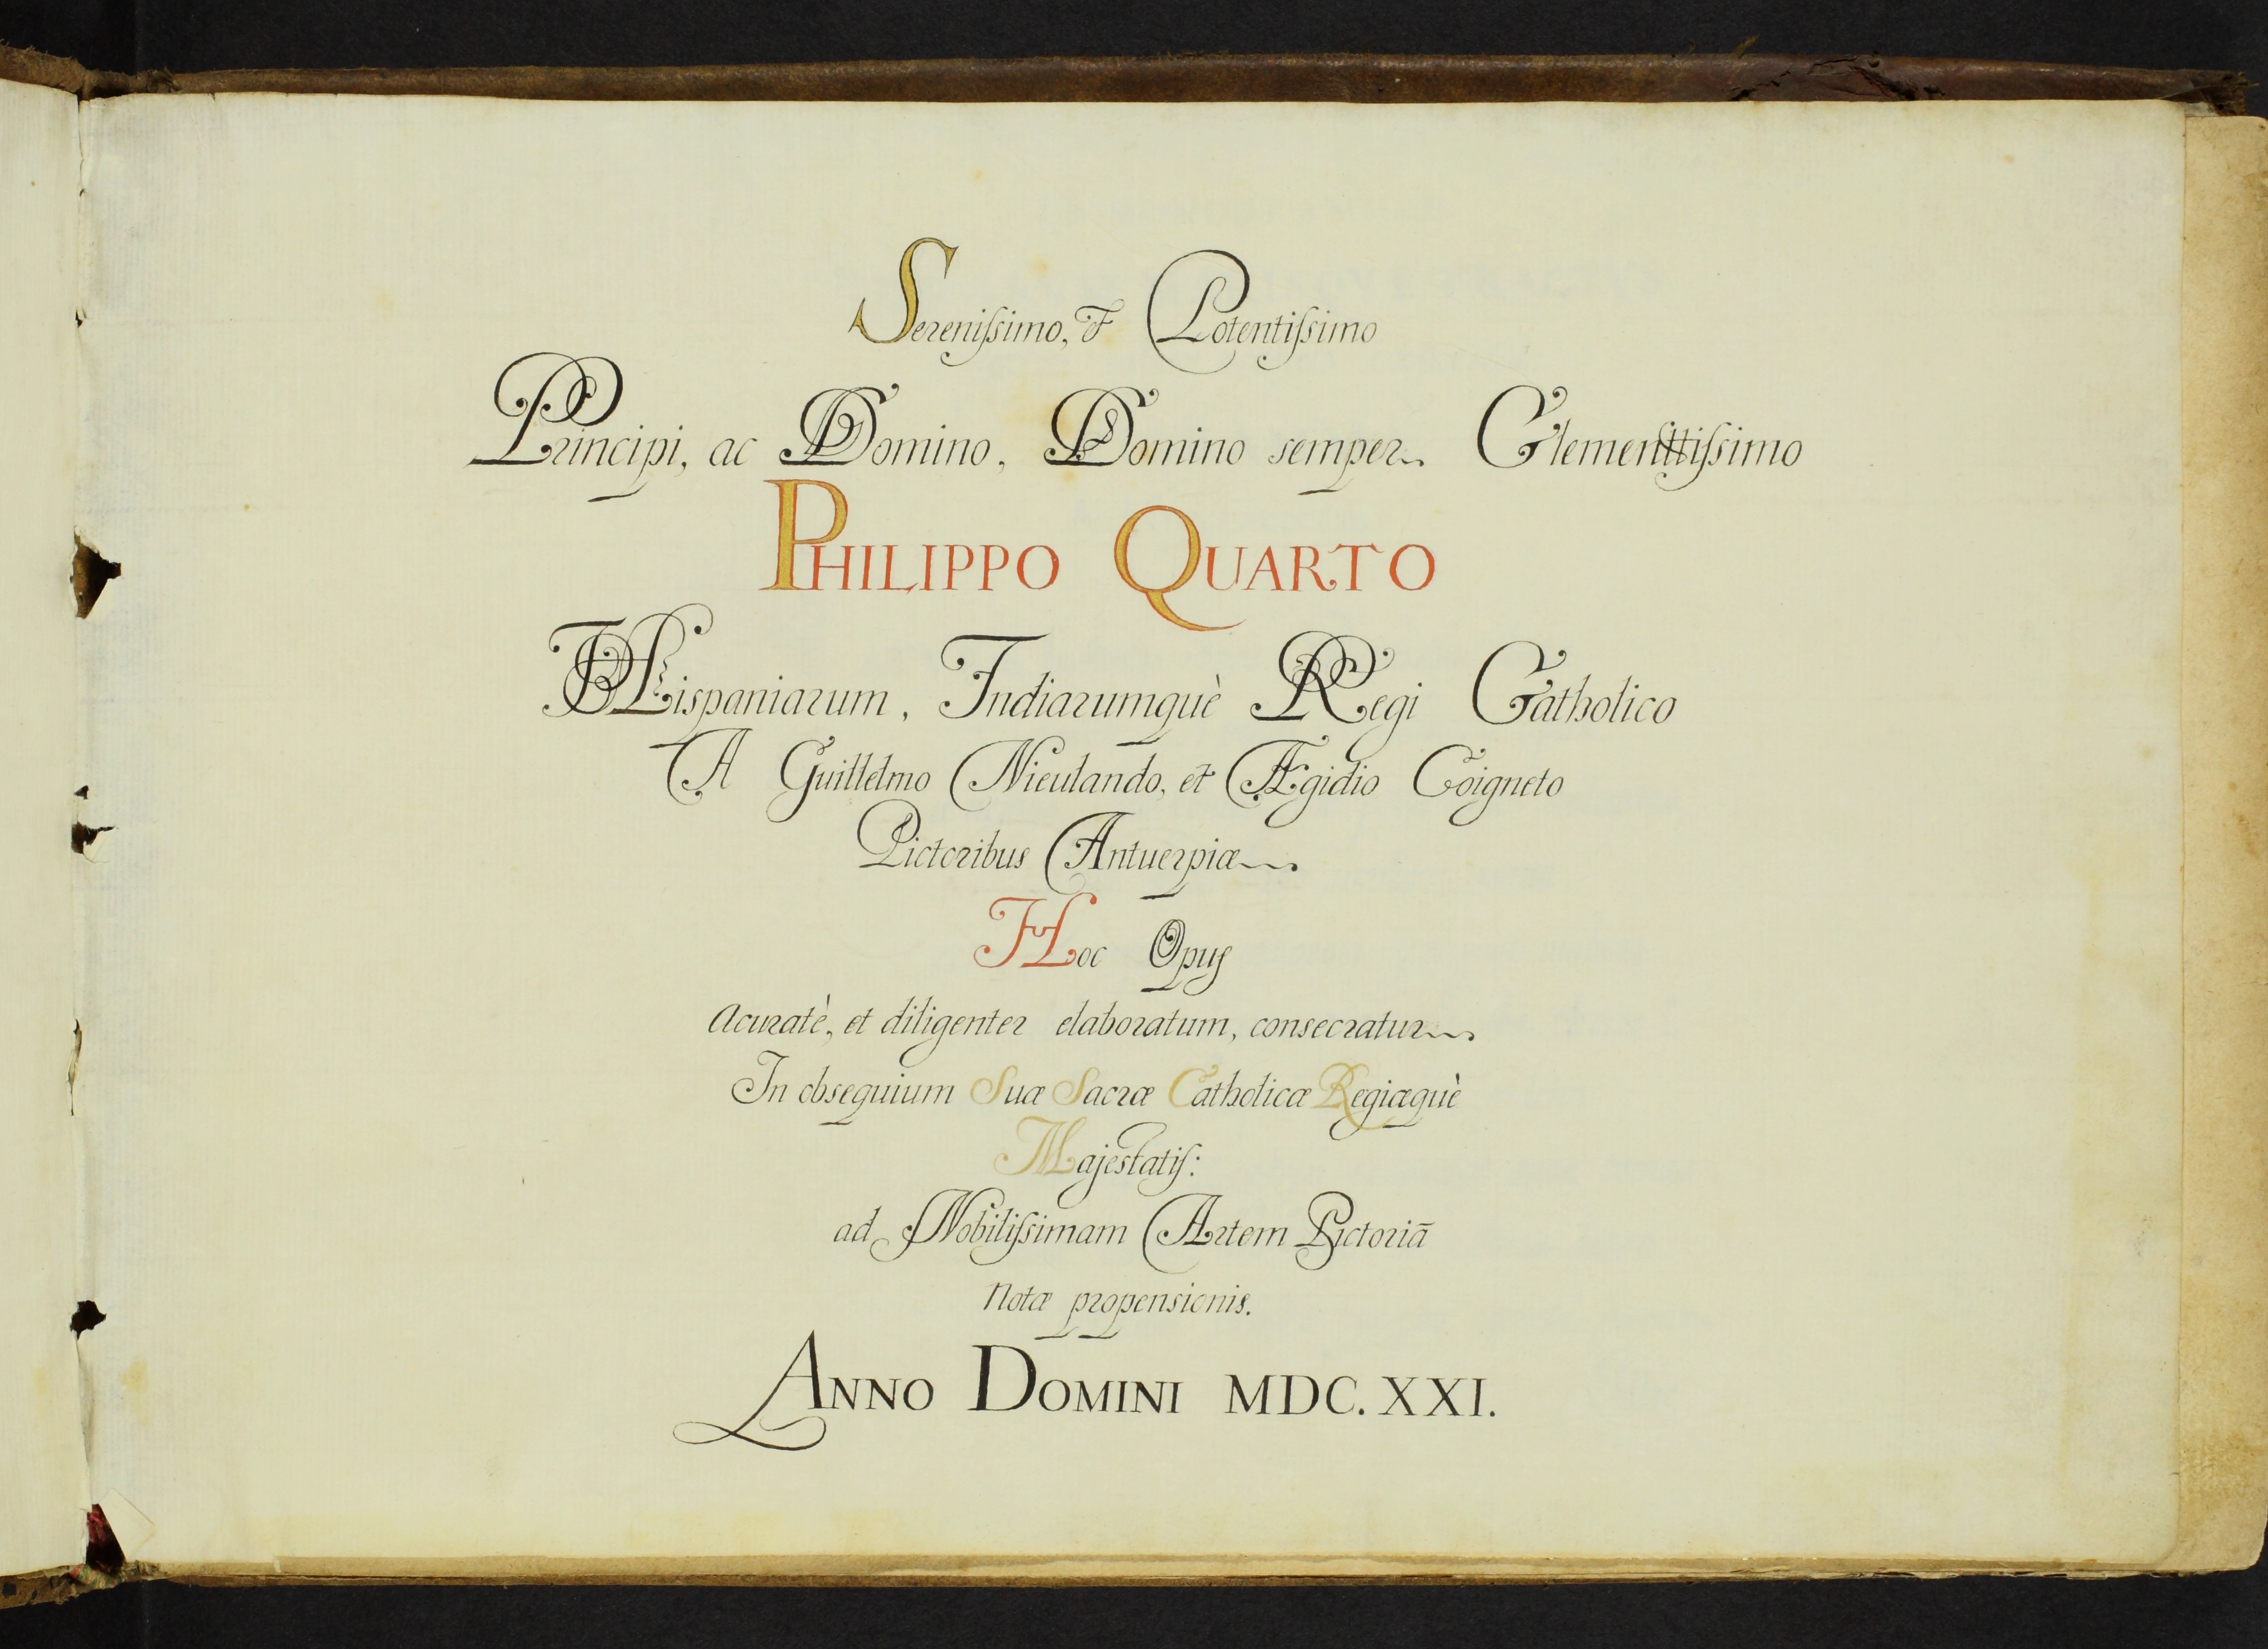 Serenissimo, & Potentissimo
Principi, ac Domino, Domino semper Clementtissimo
PHILIPPO QUARTO
Hispaniarum, Indiarumquè Regi Catholico
A Guillelmo Nieulando, et Ægidio Coigneto
Pictoribus Antuerpiæ
Hoc Opus
Acuratè, et diligenter elaboratum, consecratur
In obsequium Suæ Sacræ Catholicæ Regiæquè
Majestatis:
ad Nobilissimam Artem Pictoriā
Notæ propensionis.
ANNO DOMINI MDC.XXI.